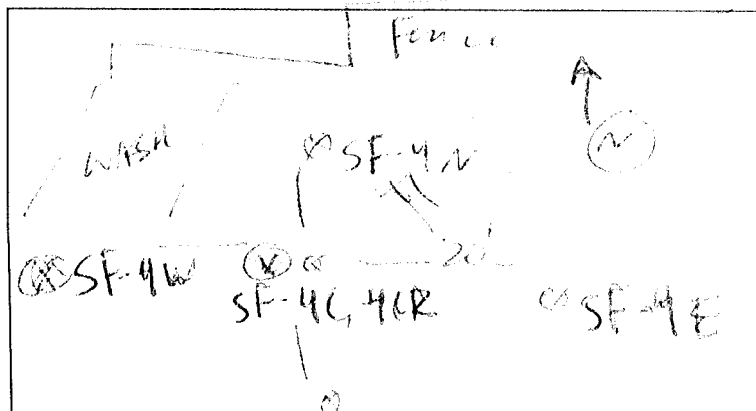 Fence
WASH
N
SF-4N
20'
SF-4W
SF-4C, 4CR
SF-4E